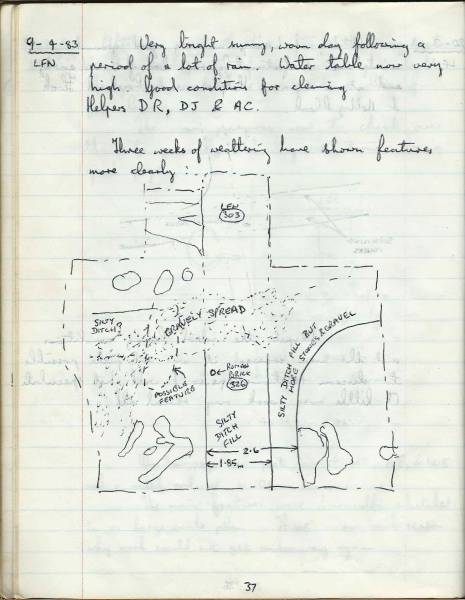 9-4-83 Very bright sunny, warm day following a
LFN period of a lot of rain. Water table now very
high. Good conditions for cleaning.
Helpers DR, DJ & AC.
Three weeks of weathering have shown features
more clearly :
LFN
303
SILTY
DITCH?
GRAVELY SPREAD
POSSIBLE
FEATURE
ROMAN
BRICK
326
SILTY DITCH FILL BUT
MORE STONES & GRAVEL
SILTY
DITCH
FILL
2.6
1.85m
37